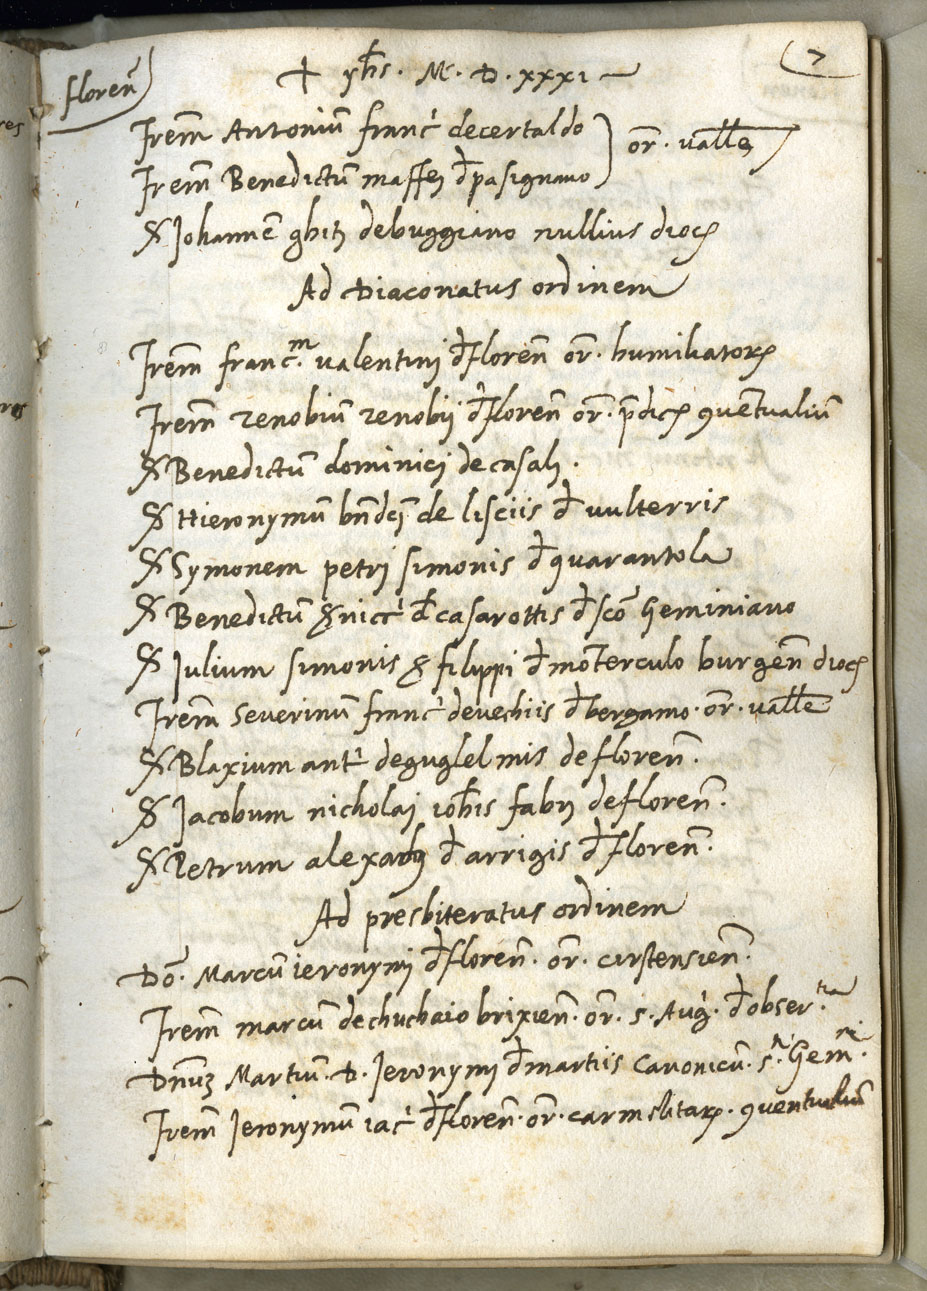 floreñ
7
+ yhs. M. D. xxxi
frem̃ Antoniũ franc̃ decertaldo
or̃. vallẽ
frem̃ Benedictũ maffej đ pasignano
Johannẽ debuggiano nullius dioc̃
Ad Diaconatus ordinem
frem̃ franc.m valentinj đ floreñ or̃. humiliatoꝝ
frem̃ zenobiũ zenobij đ floreñ or̃. p̃dic̃ ꝯuẽtualiũ
Benedictũ dominicj de casalj.
Hieronymũ bñdcj̃ de lisciis đ vulterris
Symonem petrj simonis đ quarantola
Benedictũ & nicc̃ đ casarottis đ scõ Geminiano
Julium simonis & filippi đ mõterculo burgeñ dioc̃
frem̃ Severinũ franc̃ devechiis đ bergamo. or̃. vallẽ
Blaxium ant̃ deguglelmis de floreñ.
Jacobum nicholaj ioh̃is fabrj defloreñ.
Petrum đ arrigis đ floreñ.
Ad presbiteratus ordinem
Dõ. Marcũ ieronymj đ floreñ. or̃. cirstensieñ.
frem̃ marcũ dechuchaio brixieñ. or̃. s. Aug̃. đ obser.tia
Dñuʒ Martiũ. D. Jeronymj đ martiis Canonicũ. s.ti Gem.ni
frem̃ Jeronymũ iac̃ đ floreñ. or̃. carmelitaꝝ. ꝯuentualiũ